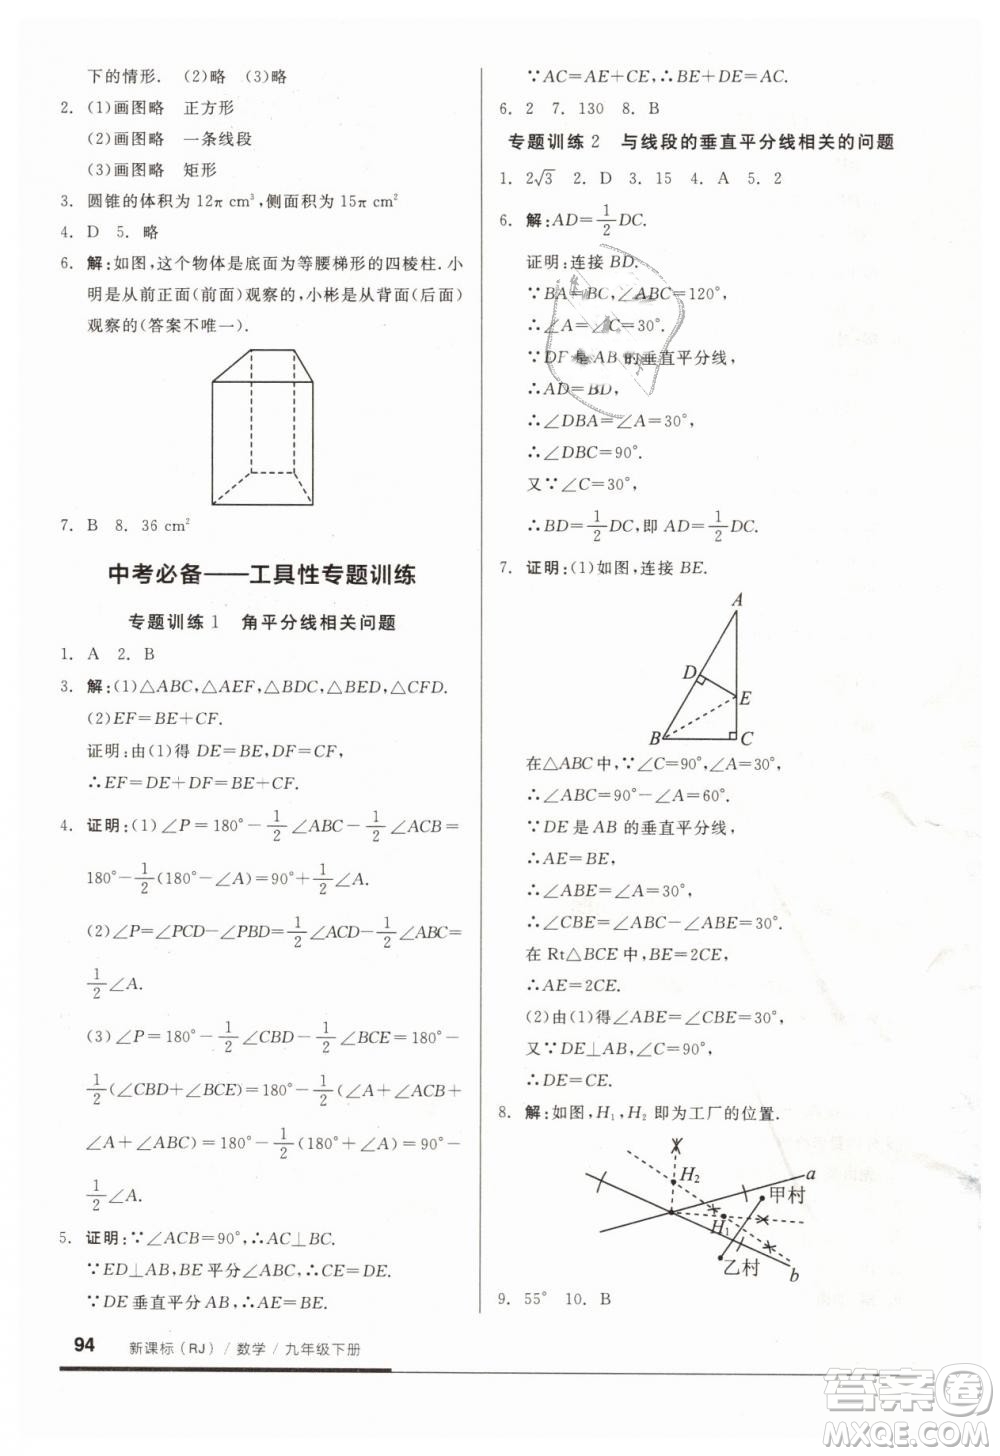 下的情形.　(2)略　(3)略
2. (1)画图略　正方形
(2)画图略　一条线段
(3)画图略　矩形
3. 圆锥的体积为 12π cm³,侧面积为 15π cm²
4. D　5. 略
6. 解:如图,这个物体是底面为等腰梯形的四棱柱.小
明是从前正面(前面)观察的,小彬是从背面(后面)
观察的(答案不唯一).
7. B　8. 36 cm²
中考必备——工具性专题训练
专题训练 1　角平分线相关问题
1. A　2. B
3. 解:(1)△ABC,△AEF,△BDC,△EBD,△CFD.
(2)EF=BE+CF.
证明:由(1)得 DE=BE,DF=CF,
∴EF=DE+DF=BE+CF.
4. 证明:(1)∠P=180°-1/2∠ABC-1/2∠ACB=
180°-1/2(180°-∠A)=90°+1/2∠A.
(2)∠P=∠PCD-∠PBD=1/2∠ACD-1/2∠ABC=
1/2∠A.
(3)∠P=180°-1/2∠CBD-1/2∠BCE=180°-
1/2(∠CBD+∠BCE)=180°-1/2(∠A+∠ACB+
∠A+∠ABC)=180°-1/2(∠A+180°)=90°-
1/2∠A.
5. 证明:∵∠ACB=90°,∴AC⊥BC.
∵ED⊥AB,BE 平分∠ABC,∴CE=DE.
∵DE 垂直平分 AB,∴AE=BE.
94　新课标(RJ)/数学/九年级下册
∵AC=AE+CE,∴BE+DE=AC.
6. 2　7. 130　8. B
专题训练 2　与线段的垂直平分线相关的问题
1. 2√3　2. D　3. 15　4. A　5. 2
6. 解:AD=1/2DC.
证明:连接 BD.
∵BA=BC,∠ABC=120°,
∴∠A=∠C=30°.
∵DF 是 AB 的垂直平分线,
∴AD=BD,
∴∠DBA=∠A=30°.
∴∠DBC=90°.
又∵∠C=30°,
∴BD=1/2DC,即 AD=1/2DC.
7. 证明:(1)如图,连接 BE.
A
D
E
B
C
在△ABC 中,∵∠C=90°,∠A=30°,
∴∠ABC=90°-∠A=60°.
∵DE 是 AB 的垂直平分线,
∴AE=BE,
∴∠ABE=∠A=30°.
∴∠CBE=∠ABC-∠ABE=30°.
在 Rt△BCE 中,BE=2CE,
∴AE=2CE.
(2)由(1)得∠ABE=∠CBE=30°,
又∵DE⊥AB,∠C=90°,
∴DE=CE.
8. 解:如图,H₁,H₂ 即为工厂的位置.
H₂
a
甲村
H₁
乙村
b
9. 55°　10. B
答案圈
MXQE.COM